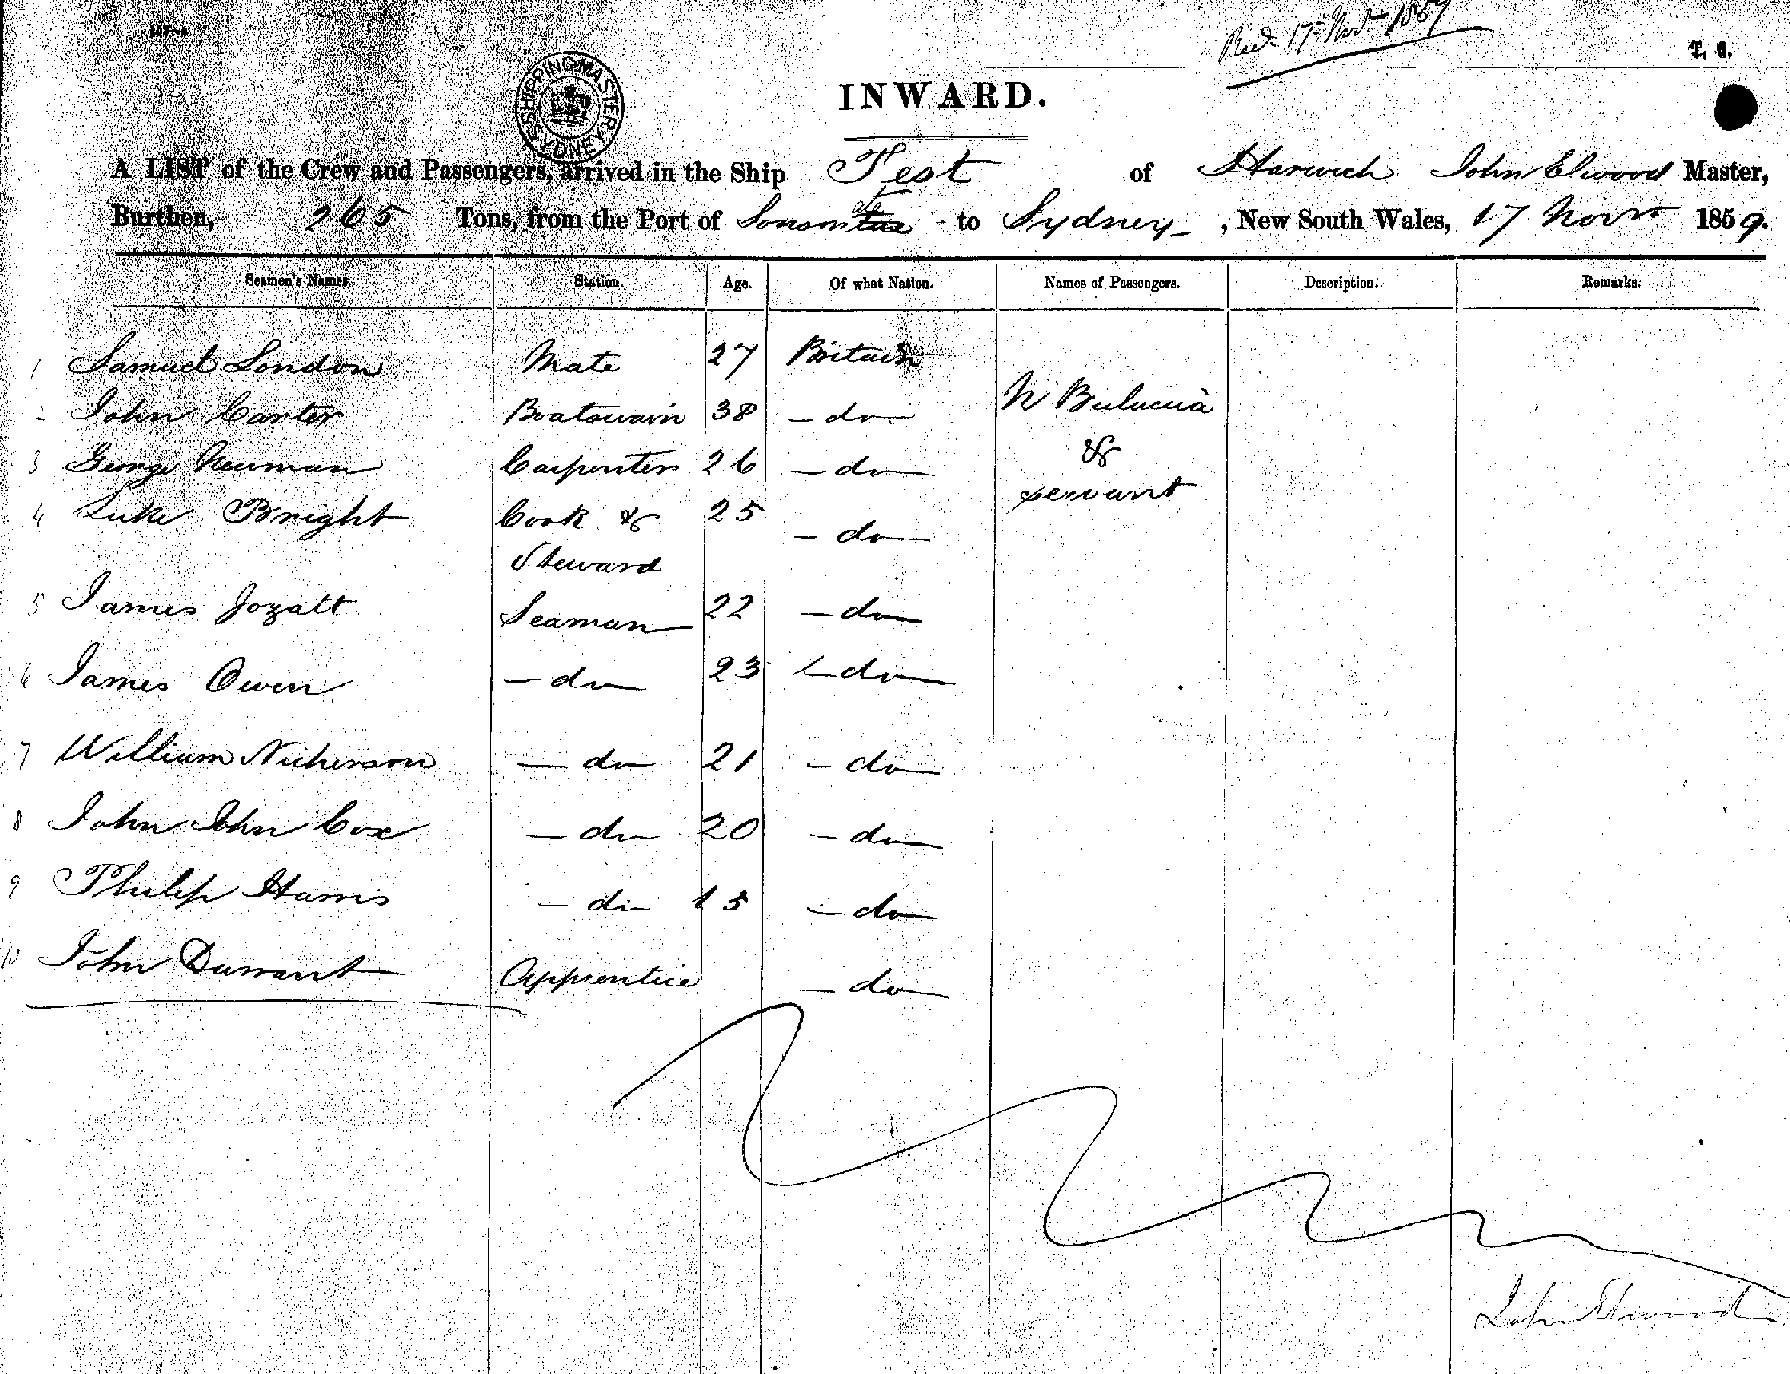 Recd 17th Novr 1859
T. C.
SHIPPING MASTER SYDNEY
INWARD.
A LIST of the Crew and Passengers, arrived in the Ship Test of Harwich John Elwood Master,
Burthen, 265 Tons, from the Port of to Sydney, New South Wales, 17 Novr 1859.
Seamen's Names. Station. Age. Of what Nation. Names of Passengers. Description. Remarks.
1 Samuel London Mate 27 Britain
2 John Carter Boatswain 38 - do - W
3 George Newman Carpenter 26 - do - &
servant
4 Luke Bright Cook & 25 - do -
Steward
5 James Jozalt Seaman 22 - do -
6 James Owen - do - 23 - do -
7 William Nickerson - do - 21 - do -
8 John John Cox - do - 20 - do -
9 Philip Harris - do - 15 - do -
10 John Durrant Apprentice - do -
John Elwood